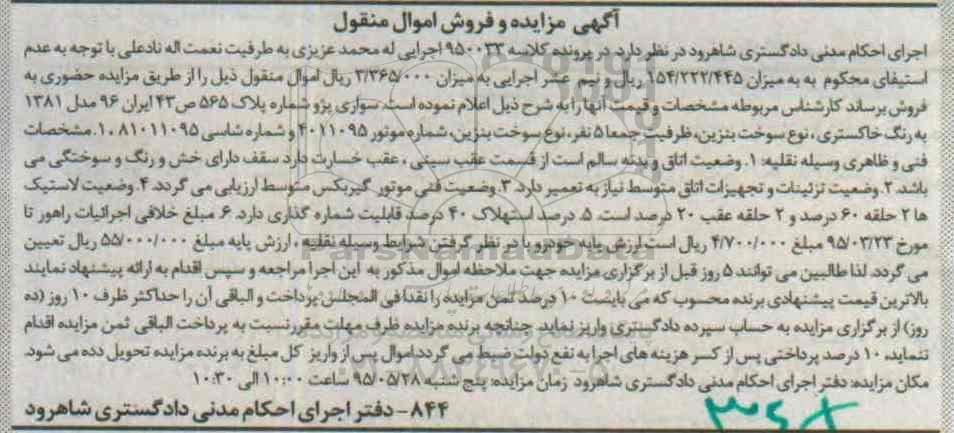 آگهی مزایده و فروش اموال منقول
اجرای احکام مدنی دادگستری شاهرود در نظر دارد در پرونده کلاسه ۹۵۰۰۳۳ اجرایی له محمد عزیزی به طرفیت نعمت اله نادعلی با توجه به عدم
استیفای محکوم به به میزان ۱۵۴/۲۲۲/۴۴۵ ریال و نیم عشر اجرایی به میزان ۳/۳۶۵/۰۰۰ ریال اموال منقول ذیل را از طریق مزایده حضوری به
فروش برساند کارشناس مربوطه مشخصات و قیمت آنها را به شرح ذیل اعلام نموده است. سواری پژو شماره پلاک ۵۶۵ ص ۴۳ ایران ۹۶ مدل ۱۳۸۱
به رنگ خاکستری، نوع سوخت بنزین، ظرفیت جمعا ۵ نفر، نوع سوخت بنزین، شماره موتور ۴۰۱۱۰۹۵ و شماره شاسی ۸۱۰۱۱۰۹۵. ۱. مشخصات
فنی و ظاهری وسیله نقلیه: ۱. وضعیت اتاق و بدنه سالم است از قسمت عقب سینی، عقب خسارت دارد سقف دارای خش و رنگ و سوختگی می
باشد. ۲. وضعیت تزئینات و تجهیزات اتاق متوسط نیاز به تعمیر دارد. ۳. وضعیت فنی موتور گیربکس متوسط ارزیابی می گردد. ۴. وضعیت لاستیک
ها ۲ حلقه ۶۰ درصد و ۲ حلقه عقب ۲۰ درصد است. ۵. درصد استهلاک ۴۰ درصد قابلیت شماره گذاری دارد. ۶. مبلغ خلافی اجرائیات راهور تا
مورخ ۹۵/۰۳/۲۳ مبلغ ۴/۷۰۰/۰۰۰ ریال است ارزش پایه خودرو با در نظر گرفتن شرایط وسیله نقلیه، ارزش پایه مبلغ ۵۵/۰۰۰/۰۰۰ ریال تعیین
می گردد. لذا طالبین می توانند ۵ روز قبل از برگزاری مزایده جهت ملاحظه اموال مذکور به این اجرا مراجعه و سپس اقدام به ارائه پیشنهاد نمایند
بالاترین قیمت پیشنهادی برنده محسوب که می بایست ۱۰ درصد ثمن مزایده را نقدا فی المجلس پرداخت و الباقی آن را حداکثر ظرف ۱۰ روز (ده
روز) از برگزاری مزایده به حساب سپرده دادگستری واریز نماید. چنانچه برنده مزایده ظرف مهلت مقرر نسبت به پرداخت الباقی ثمن مزایده اقدام
ننماید، ۱۰ درصد پرداختی پس از کسر هزینه های اجرا به نفع دولت ضبط می گردد اموال پس از واریز کل مبلغ به برنده مزایده تحویل دده می شود.
مکان مزایده: دفتر اجرای احکام مدنی دادگستری شاهرود زمان مزایده: پنج شنبه ۹۵/۰۵/۲۸ ساعت ۱۰:۰۰ الی ۱۰:۳۰
۸۴۴- دفتر اجرای احکام مدنی دادگستری شاهرود